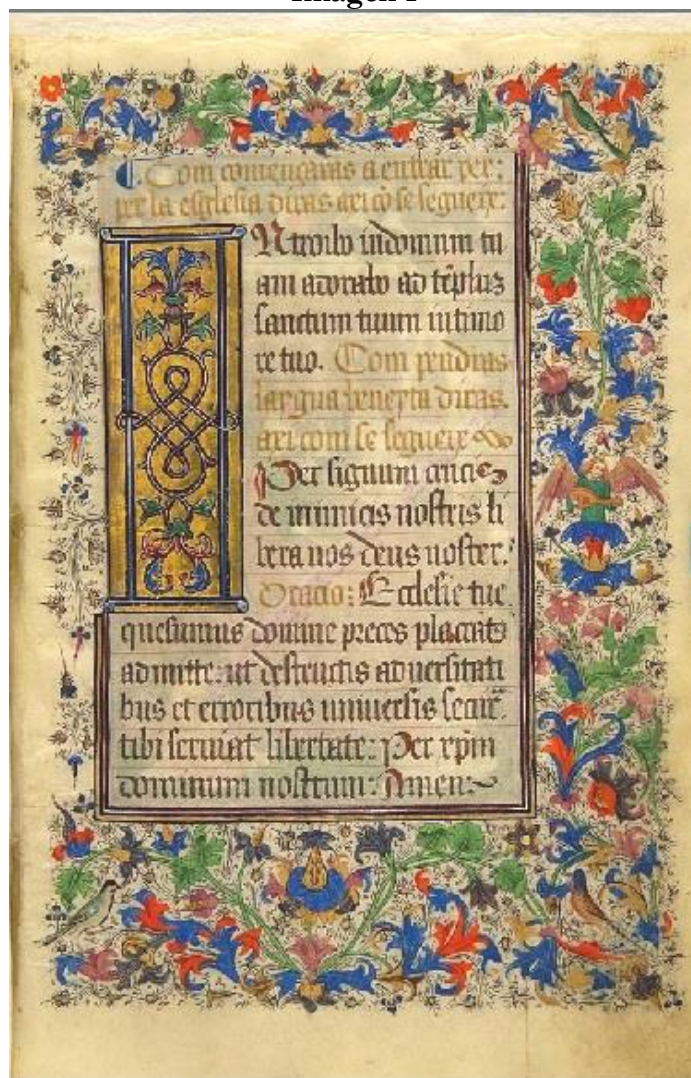 Imagen 1
Com començaras a entrar per:
per la esglesia diras axi cō se segueix:
Ntroibo in domum tu
am adorabo ad tēplum
sanctum tuum in timo
re tuo. Com pendras
laygua beneyta diras
axi com se segueix
Per signum crucis
de inimicis nostris li
bera nos deus noster.
Oracio: Ecclesie tue
quesumus domine preces placat9
admitte: ut destructis aduersitati
bus et erroribus uniuersis secur̄
tibi seruiat libertate: Per xpm̄
dominum nostrum: Amen: